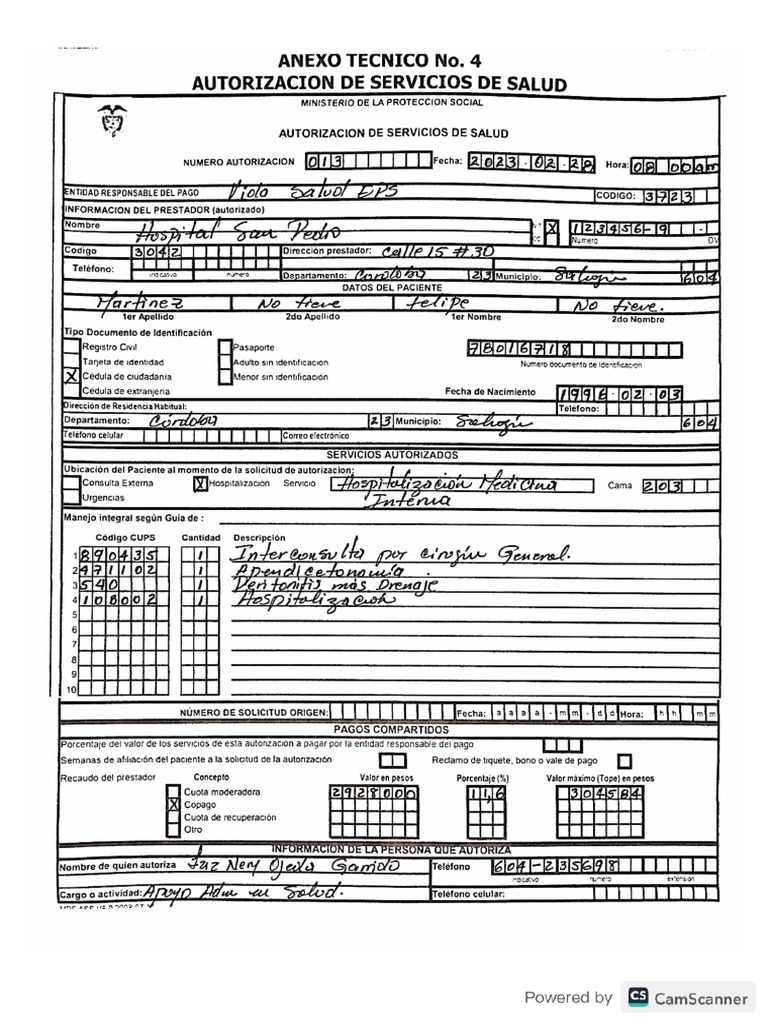 ANEXO TECNICO No. 4
AUTORIZACION DE SERVICIOS DE SALUD
MINISTERIO DE LA PROTECCION SOCIAL
AUTORIZACION DE SERVICIOS DE SALUD
NUMERO AUTORIZACION 013 Fecha: 2023-02-28 Hora: 08 00am
ENTIDAD RESPONSABLE DEL PAGO Vida Salud EPS CODIGO: 3723
INFORMACION DEL PRESTADOR (autorizado)
Nombre Hospital San Pedro NIT X 123456-9 -
CC Numero DV
Codigo 3042 Dirección prestador: Calle 15 #30
Teléfono: indicativo numero Departamento: Cordoba 23 Municipio: Sahagún 604
DATOS DEL PACIENTE
Martinez No tiene Felipe No tiene.
1er Apellido 2do Apellido 1er Nombre 2do Nombre
Tipo Documento de Identificación
Registro Civil Pasaporte 78016718
Tarjeta de identidad Adulto sin identificación Numero documento de Identificacion
X Cédula de ciudadanía Menor sin identificación
Cédula de extranjeria Fecha de Nacimiento 1996-02-03
Dirección de Residencia Habitual: Teléfono:
Departamento: Cordoba 23 Municipio: Sahagún 604
Telefono celular Correo electrónico
SERVICIOS AUTORIZADOS
Ubicación del Paciente al momento de la solicitud de autorizacion:
Consulta Externa X Hospitalización Servicio Hospitalización Medicina Cama 203
Urgencias Interna
Manejo integral según Guia de :
Código CUPS Cantidad Descripción
1 890435 1 Interconsulta por cirugía General.
2 471102 1 Apendicetonomía.
3 540 1 Peritonitis más Drenaje
4 108002 1 Hospitalización
5
6
7
8
9
10
NÚMERO DE SOLICITUD ORIGEN: Fecha: a a a a - m m - d d Hora: h h m m
PAGOS COMPARTIDOS
Porcentaje del valor de los servicios de esta autorizacion a pagar por la entidad responsable del pago
Semanas de afiliación del paciente a la solicitud de la autorización Reclamo de tiquete, bono o vale de pago
Recaudo del prestador Concepto Valor en pesos Porcentaje (%) Valor máximo (Tope) en pesos
Cuota moderadora 2928000 11,6 304584
X Copago
Cuota de recuperación
Otro
INFORMACION DE LA PERSONA QUE AUTORIZA
Nombre de quien autoriza Nery Ojeda Garrido Teléfono 604-235698
indicativo numero extensión
Cargo o actividad: Apoyo Adm en Salud. Teléfono celular:
Powered by CS CamScanner